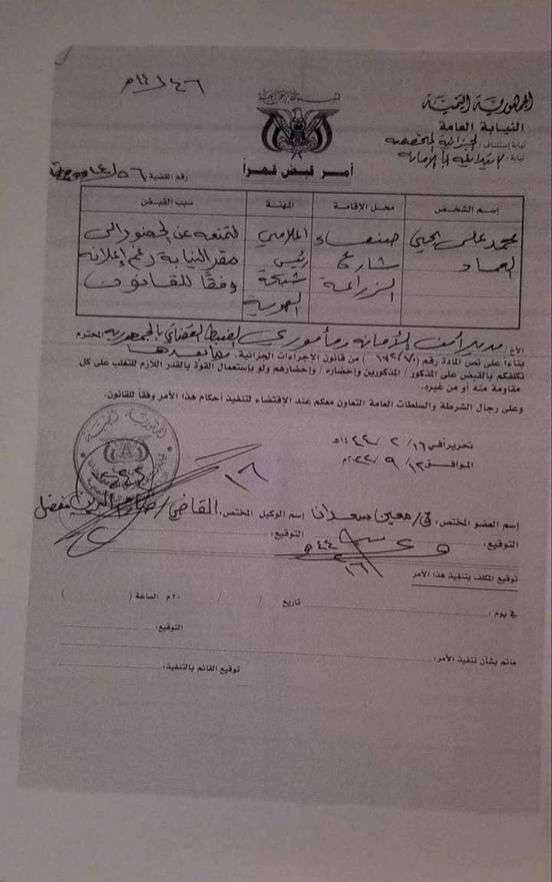 الجمهورية اليمنية
النيابة العامة
نيابة إستئناف/ الجزائية المتخصصة
نيابة/
أمر قبض قهراً
رقم القضية
إسم الشخص
محل الإقامة
المهنة
سبب القبض
محمد علي يحيى العماد
صنعاء شارع الزراعة
اعلامي رئيس شبكة الهوية
لتمنعه عن الحضور الى مقر النيابة رغم إعلانه وفقا للقانون
الأخ/ مدير امن الأمانة ومأموري الضبط القضائي بالجمهورية المحترم
بناءاً على نص المادة رقم ( ) من قانون الإجراءات الجزائية. وما بعدها
نكلفكم بالقبض على المذكور / المذكورين وإحضاره / وإحضارهم ولو بإستعمال القوة بالقدر اللازم للتغلب على كل
مقاومة منه أو من غيره.
وعلى رجال الشرطة والسلطات العامة التعاون معكم عند الإقتضاء لتنفيذ أحكام هذا الأمر وفقاً للقانون.
تحرير في ١٦/ ٢ / ١٤٤٤هـ
الموافق ١٢/ ٩ / ٢٠٢٢م
إسم العضو المختص:
إسم الوكيل المختص: القاضي/
التوقيع:
التوقيع:
توقيع المكلف بتنفيذ هذا الأمر
في يوم: تاريخ / / ٢٠م الساعة ( )
التوقيع:
ماتم بشأن تنفيذ الأمر:
توقيع القائم بالتنفيذ: